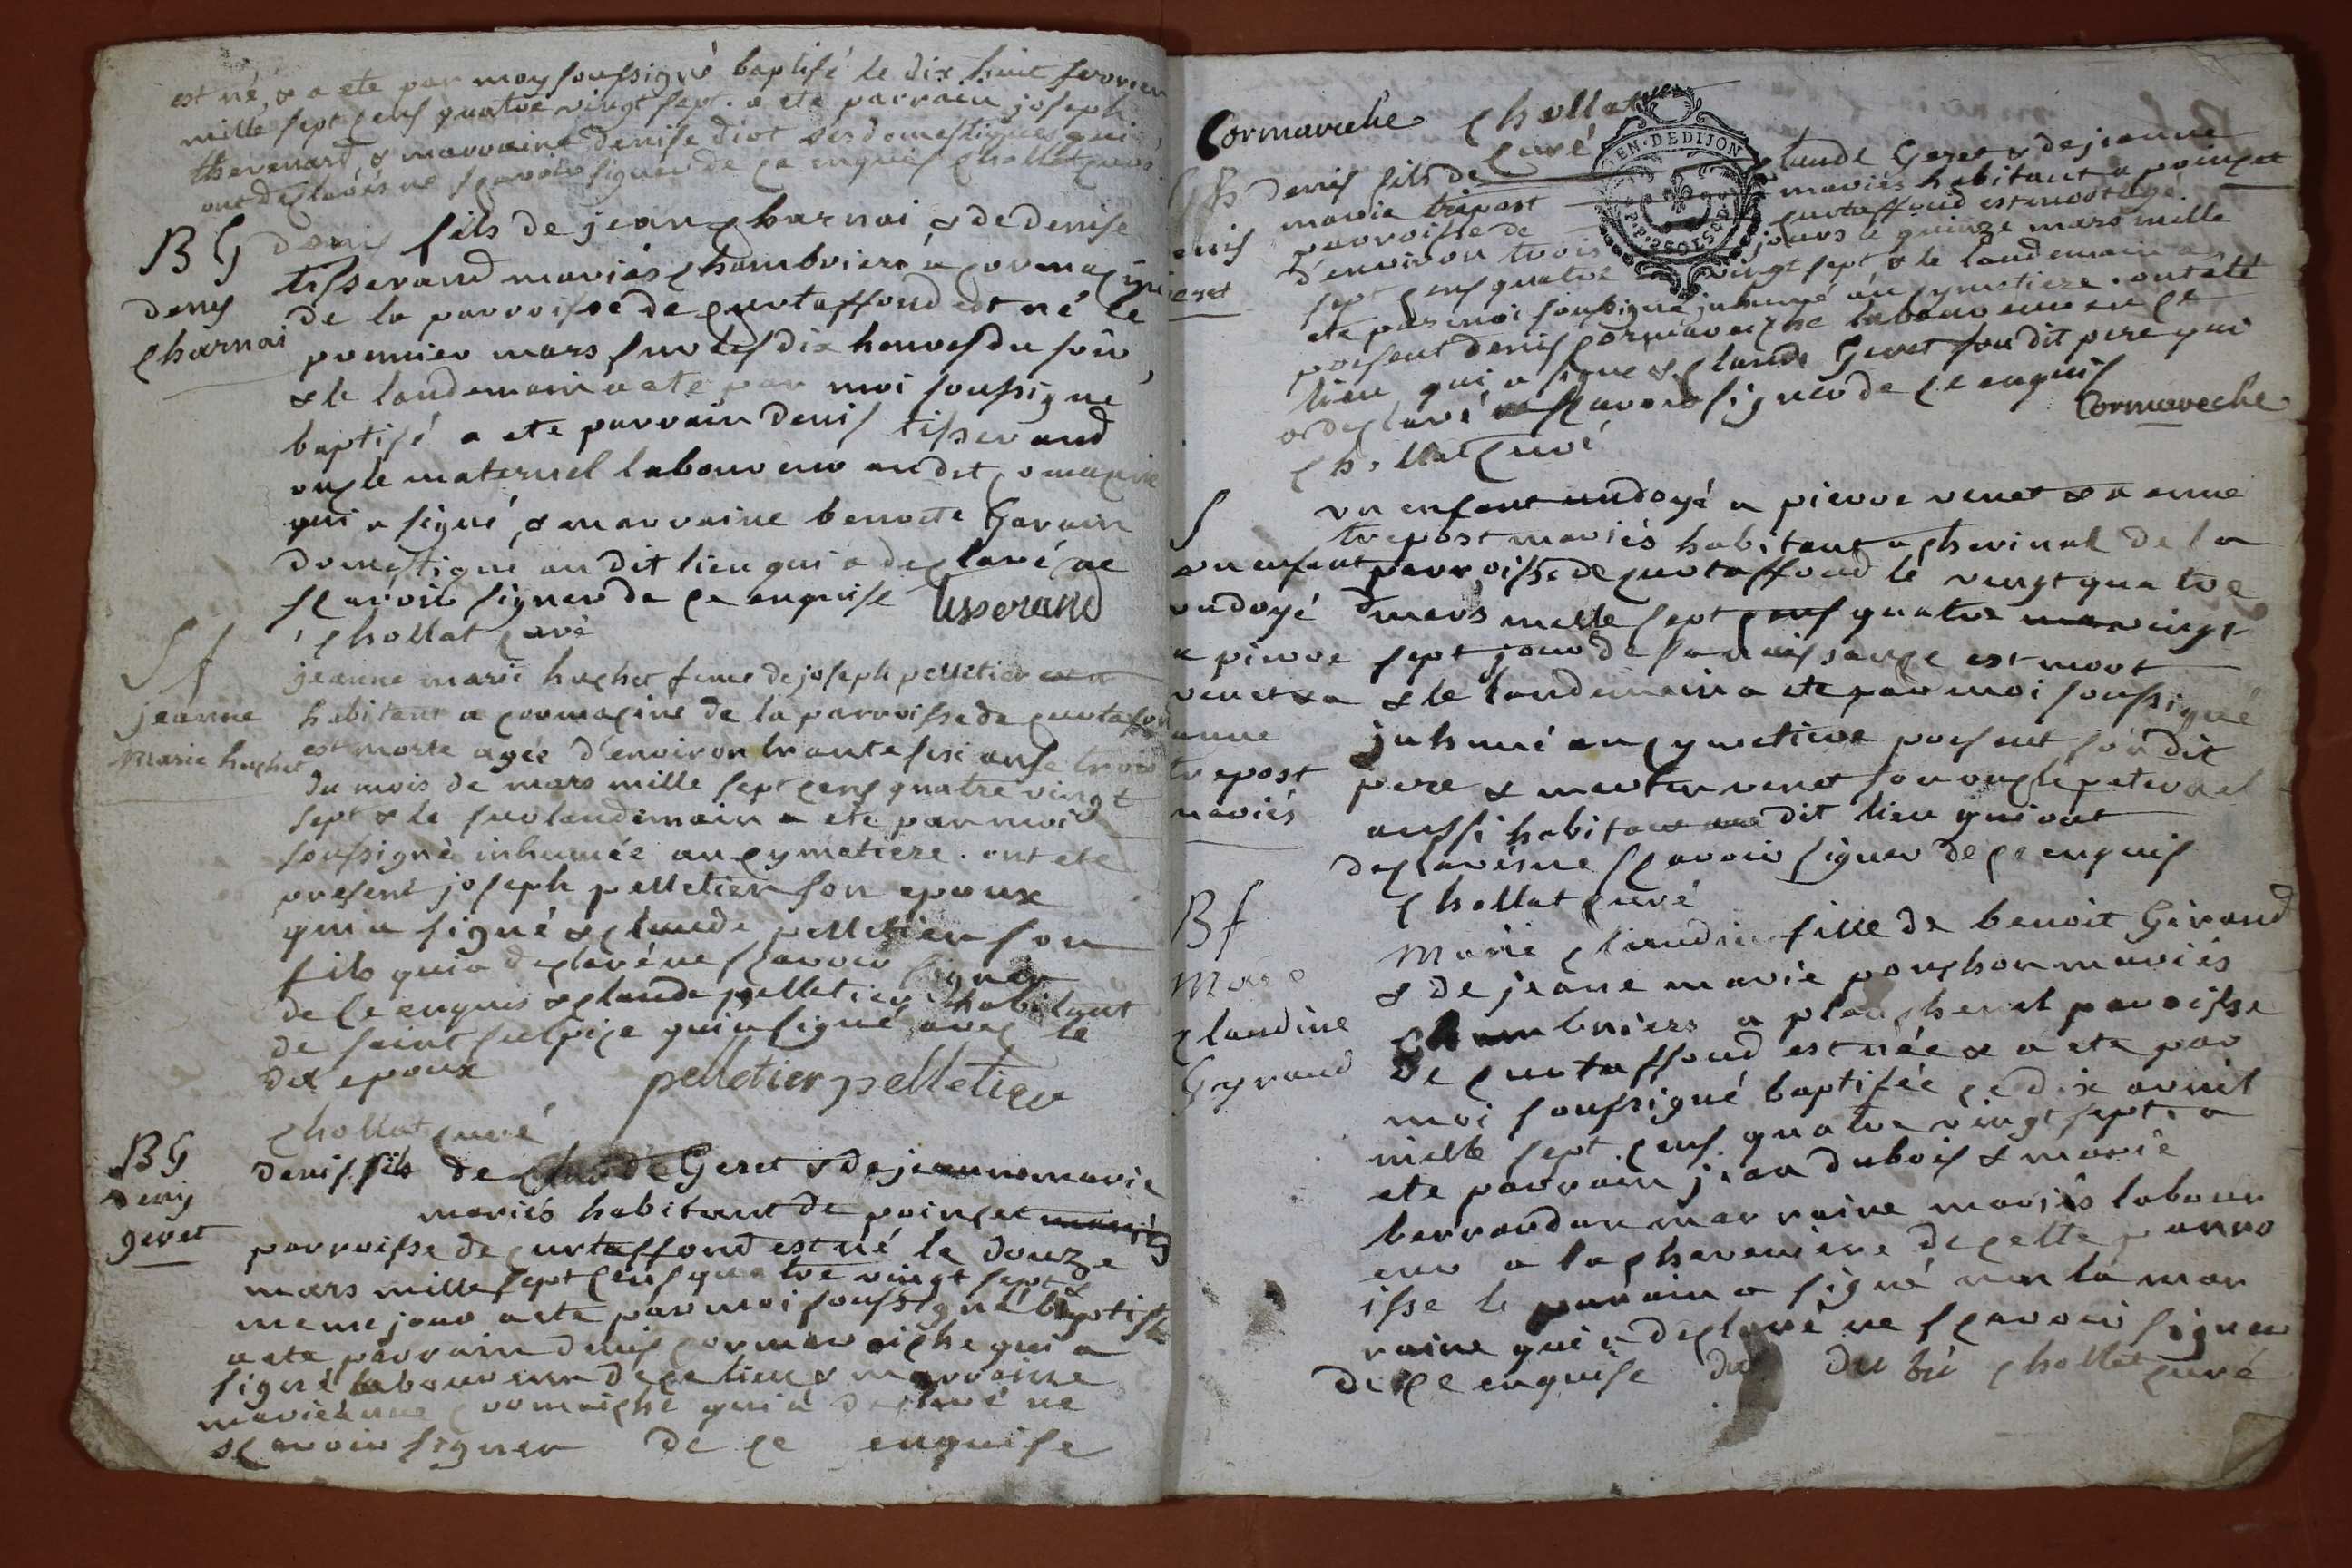 est né, & a ete par moy soussigné baptisé le dix huit fevrier
mille sept cens quatre vingt sept. a ete parrain joseph
thevenard & marraine denise diot ses domestiques qui
ont declarés ne scavoir signer de ce enquis chollat curé
BG
denis
charnai
denis fils de jean charnai & de denise
tisserand mariés chambriers à cormacine
de la parroisse de curtaffond est né le
premier mars sur les dix heures du soir
& le landemain a ete par moi soussigné
baptisé a ete parrain denis tisserand
oncle maternel laboureur audit comacine
qui a signé, & marraine benoite Gavain
domestique audit lieu qui a declaré ne
scavoir signer de ce enquise tisserand
chollat curé
Sf
jeanne
marie huchet
jeanne marie huchet feme de joseph pelletier
habitant a cormacine de la parroisse de curtafon
est morte agée d'environ trante six ans le trois
du mois de mars mille sept cens quatre vingt
sept & le surlandemain a ete par moi
soussigné inhumée au cymetiere. ont ete
present joseph pelletier son epoux
qui a signé & claude pelletier son
fils qui a declaré ne scavoir signer
de ce enquis & claude pelletier habitant
de saint sulpice qui a signé avec le
dit epoux pelletier pelletier
chollat curé
BG
denis
geret
denis fils de claude Geret & de jeanne marie
mariés habitant de poincet mariés
parroisse de curtaffond est né le douze
mars mille sept cens quatre vingt sept &
meme jour a ete par moi soussigné baptisé
a ete parrain denis cormaraiche qui a
signé laboureur de ce lieu & marraine
marie anne cromaiche qui a declaré ne
scavoir signer de ce enquise
Cormareche chollat
curé
GEN. DE DIJON
denis
geret
denis fils de claude Geret & de jeanne
marie trepost mariés habitant a poincet
parroisse de curtaffond est mort agé
d'environ trois jours le quinze mars mille
sept cens quatre vingt sept & le landemain a
ete par moi soussigné inhumé au cymetiere. ont eté
present denis cormaraiche laboureur en ce
lieu qui a signé & claude Geret son dit pere qui
a declaré ne scavoir signer de ce enquis
chollat curé Cormareche
S
un enfant
ondoyé
a pierre
venet & a
anne
trepost
mariés
un enfant ondoyé a pierre venet & a anne
trepost mariés habitant a chevinal de la
parroisse de curtaffond le vingt quatre
mars mille sept cens quatre vingt
sept jour de sa naissance est mort
& le landemain a ete par moi soussigné
inhumé au cymetiere present son dit
pere & venet son oncle paternel
aussi habitant au dit lieu qui ont
declarés ne scavoir signer de ce enquis
chollat curé
Bf
marie
claudine
Gyraud
marie claudine fille de benoit Giraud
& de jeane marie pouchon mariés
chambriers a plancheret paroisse
de curtaffond est née & a ete par
moi soussigné baptisée ce dix avril
mille sept cens quatre vingt sept. a
ete parrain jean dubois & marie
berrandan marraine mariés labour
eur a la chareniere de cette parro
isse le parrain a signé non la mar
raine qui a declaré ne scavoir signer
de ce enquise du bü chollat curé